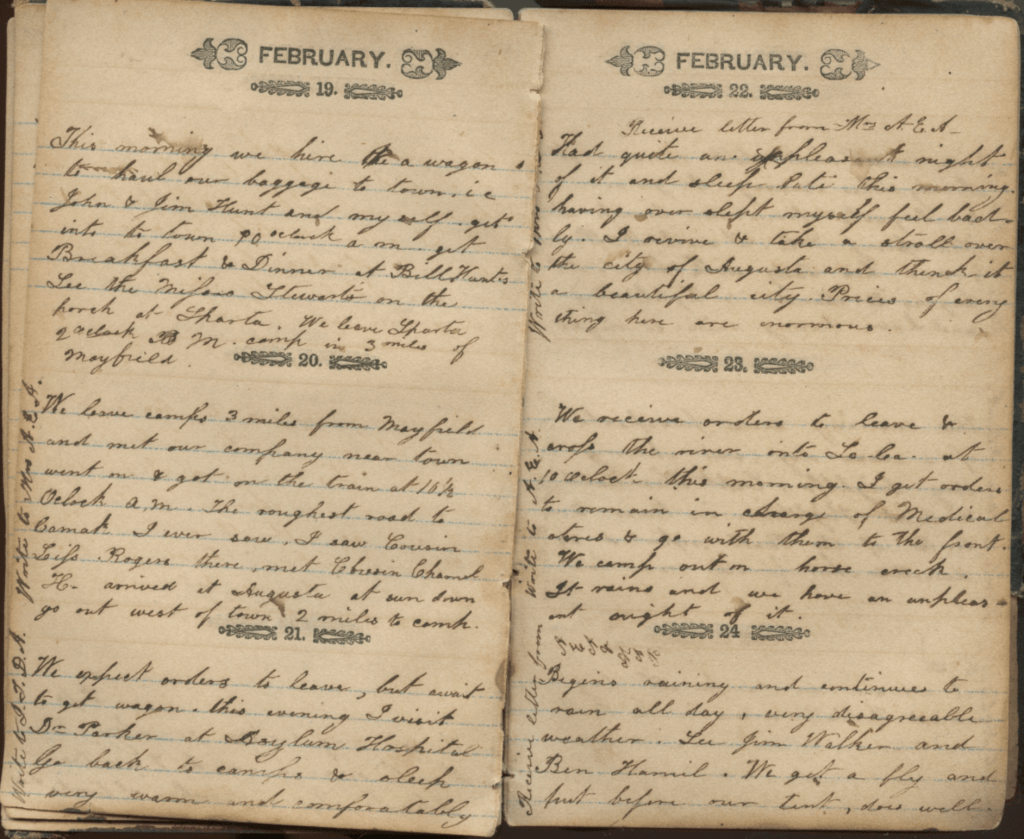 FEBRUARY.
19.
This morning we hire a wagon
to haul our baggage to town. i.e
John & Jim Hunt and my self get
into to town oclock a m. get
Breakfast & Dinner at Bill Hunts
See the Misses Stewarts on the
porch at Sparta. We leave Sparta
2 oclock P M. camp in 3 miles of
Mayfield.
20.
We leave camps 3 miles from Mayfield
and met our company near town
went on & got on the train at 10½
Oclock A.M. The roughest road to
Camak I ever saw. I saw Cousin
Rogers there, met Cousin
H- arrived at Augusta at sun down
go out west of town 2 miles to camp.
Write to Mrs A. E. A.
21.
We expect orders to leave, but await
to get wagon. this evening I visit
Dr Parker at Asylum Hospital
Go back to camps & sleep
very warm and comfortably
Write to D. A.
FEBRUARY.
22.
Receive letter from Mrs A E A-
Had quite an night
of it and sleep late this morning.
having over slept myself feel bad-
ly. I revive & take a stroll over
the city of Augusta and think it
a beautiful city. Prices of every
thing here are enormous.
Write to Mrs
23.
We receive orders to leave &
cross the river into So Ca. at
10 Oclock this morning. I get orders
to remain in charge of Medical
stores & go with them to the front.
We camp out on horse creek.
It rains and we have an unpleas-
ant night of it.
Write to A. E. A.
24
Begins raining and continues to
rain all day, very disagreeable
weather. See Jim Walker and
Ben Hamil. We get a fly and
put before our tent, does well.
Receive letter from